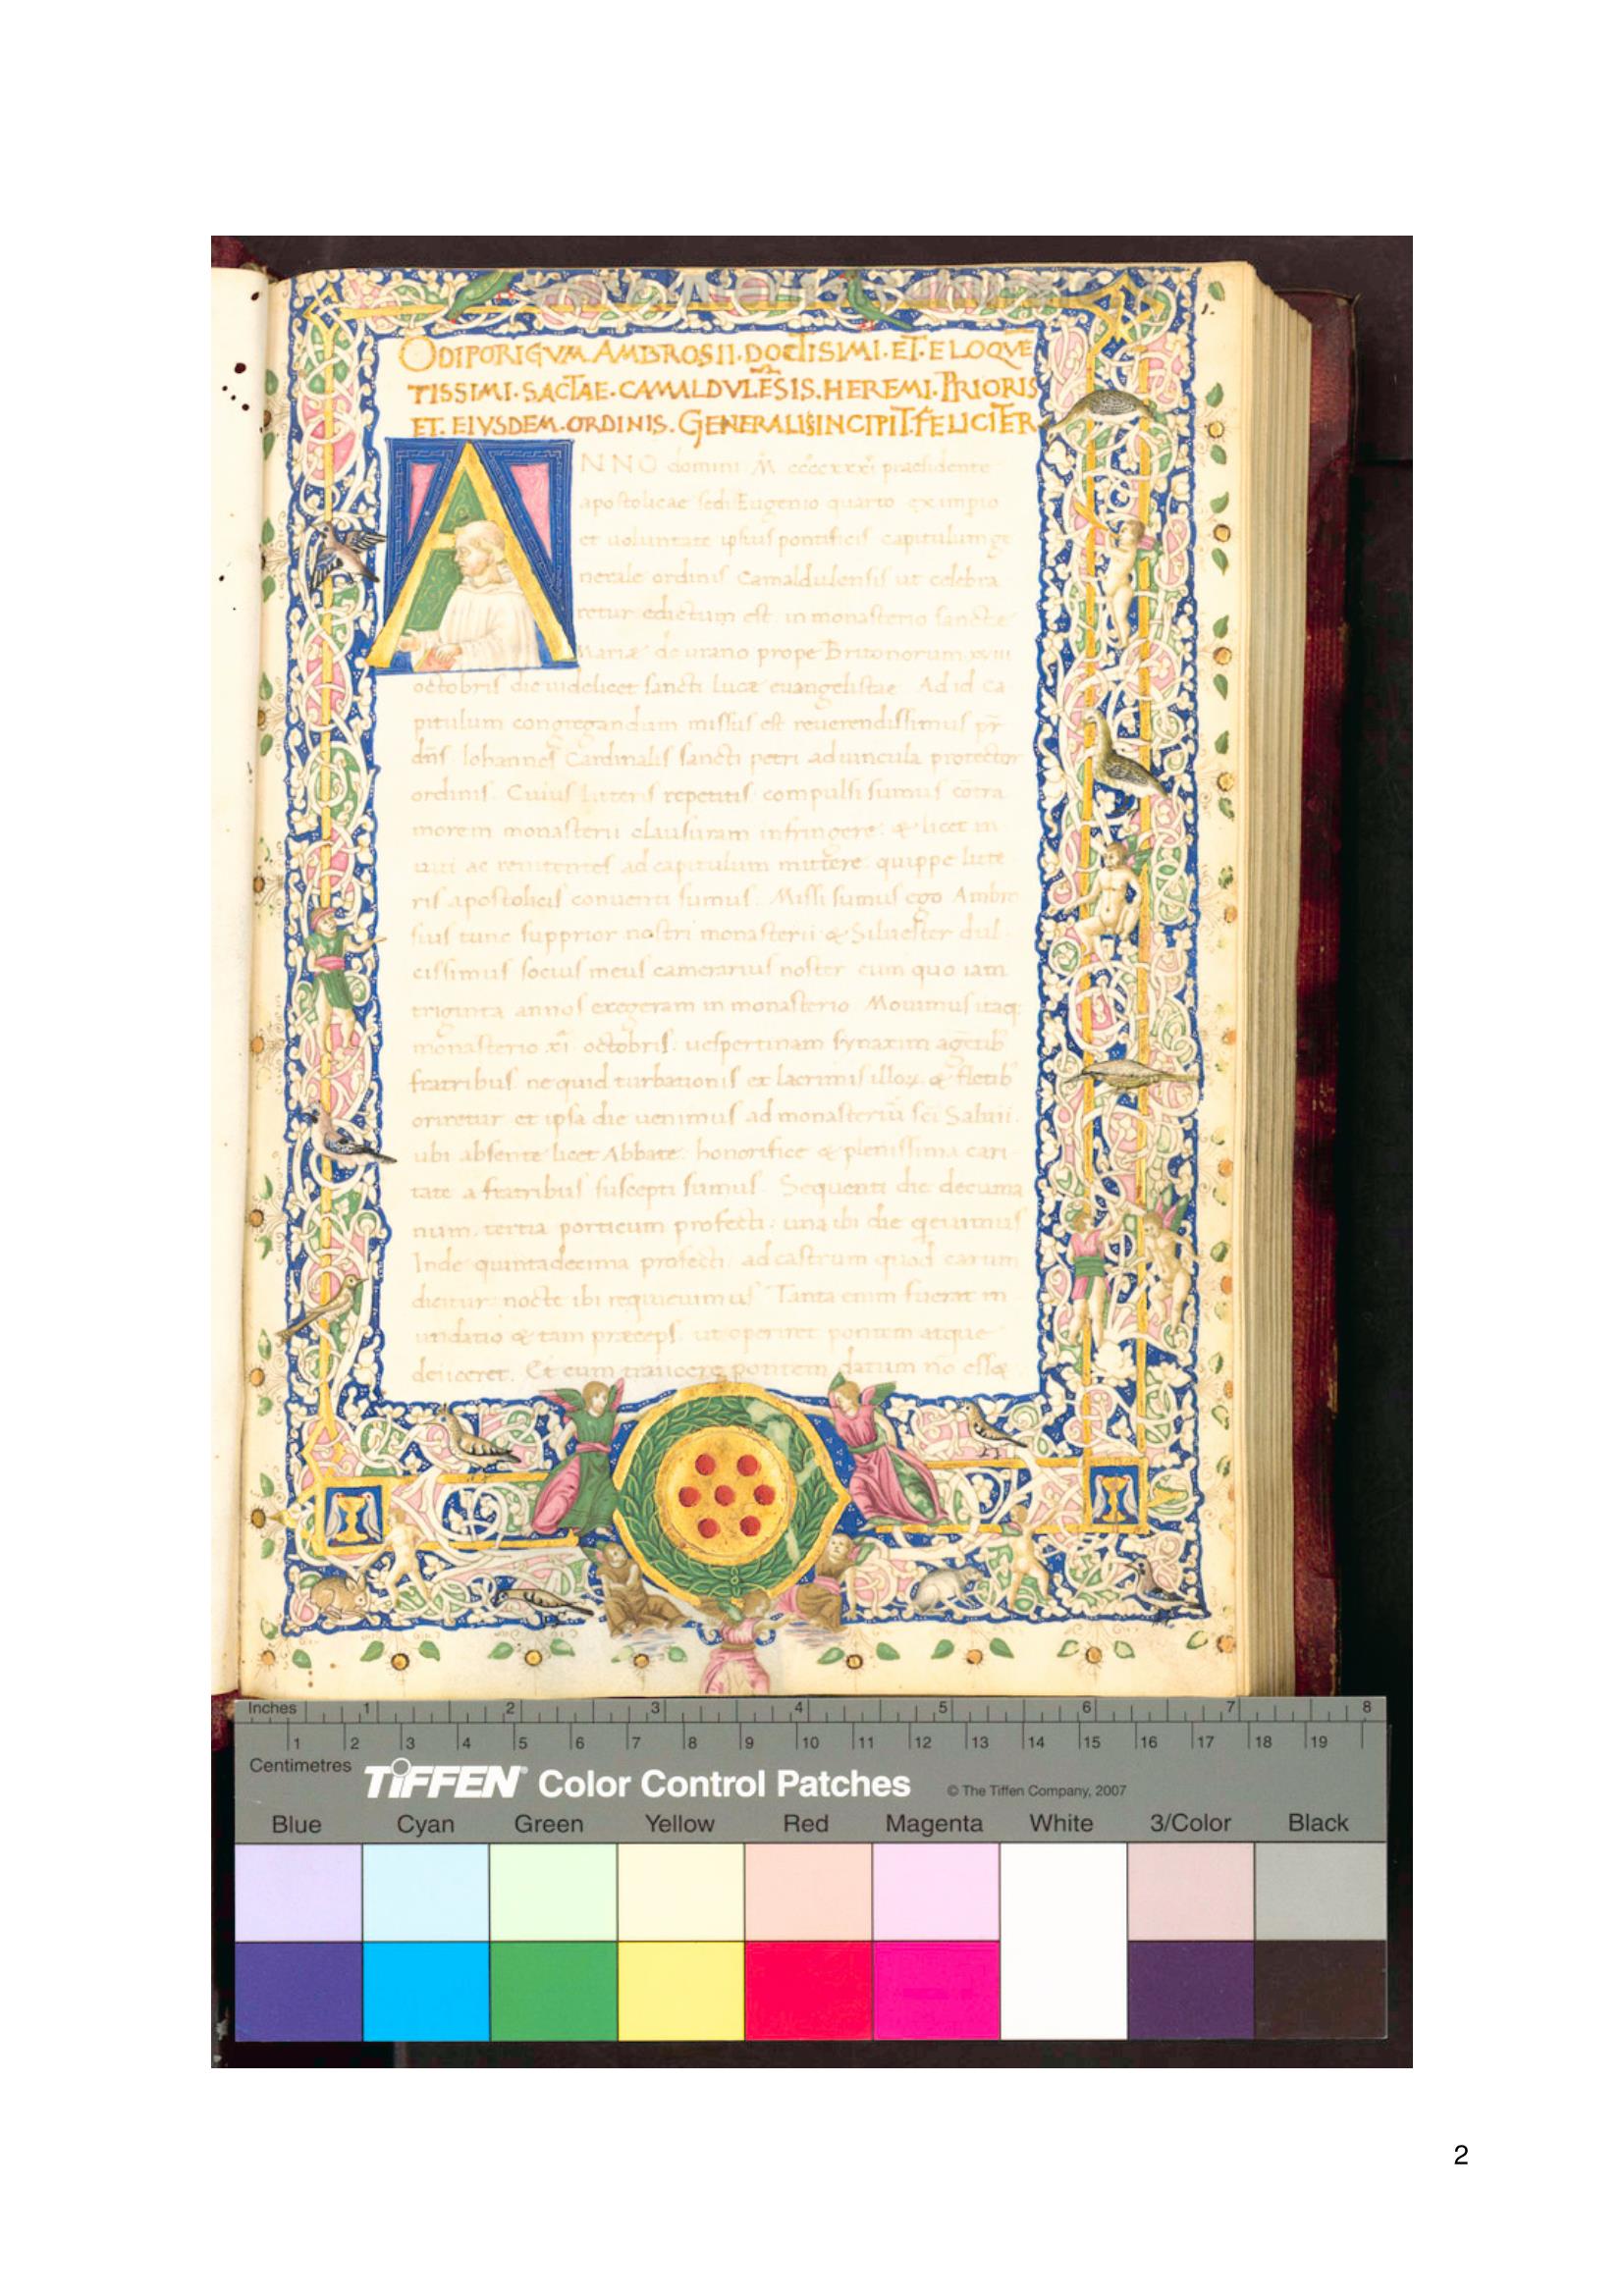 ODIPORIGVM AMBROSII·DOCTISIMI·ET·ELOQVE
TISSIMI·SACTAE·CAMALDVLESIS·HEREMI·PRIORIS
ET·EIVSDEM·ORDINIS·GENERALIS INCIPIT·FELICITER
ANNO domini M ccccxxxi praesidente
apostolicae sedi Eugenio quarto ex imperio
et uoluntate ipsius pontificis capitulum ge
nerale ordinis Camaldulensis ut celebra
retur edictum est in monasterio sanctae
Mariae de urano prope Britonorum xviii
octobris die uidelicet sancti lucae euangelistae Ad id ca
pitulum congregandum missus est reuerendissimus pr̄
dn̄s Iohannes Cardinalis sancti petri ad uincula protector
ordinis. Cuius litteris repetitis compulsi sumus cōtra
morem monasterii clausuram infringere: & licet in
uiti ac renitentes ad capitulum mittere quippe litte
ris apostolicis conuenti sumus. Missi sumus ego Ambro
sius tunc supprior nostri monasterii & Siluester dul
cissimus socius meus camerarius noster cum quo iam
triginta annos exegeram in monasterio Mouimus itaq;
monasterio xi octobris uespertinam synaxim agētib
fratribus ne quid turbationis ex lacrimis illoꝝ & fletib
oriretur et ipsa die uenimus ad monasteriū sc̄i Saluii.
ubi absente licet Abbate honorifice & plenissima cari
tate a fratribus suscepti sumus. Sequenti die decuma
num. tertia porticum profecti: una ibi die quiuimus
Inde quintadecima profecti ad castrum quod carum
dicitur nocte ibi requieuimus Tanta enim fuerat in
undatio & tam praeceps. ut operiret pontem atque
deiiceret. Et cum traiicere pontem datum nō esset
Inches 1 2 3 4 5 6 7 8
1 2 3 4 5 6 7 8 9 10 11 12 13 14 15 16 17 18 19
Centimetres
TIFFEN® Color Control Patches © The Tiffen Company, 2007
Blue Cyan Green Yellow Red Magenta White 3/Color Black
2